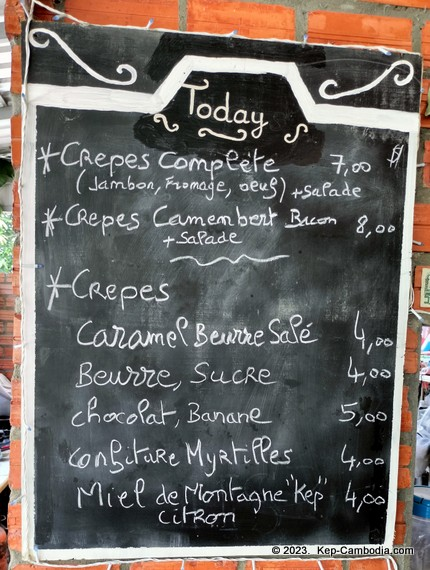 Today
*Crepes Complète 7,00 $
(Jambon, Fromage, oeuf) + Salade
*Crepes Camembert Bacon 8,00
+ Salade
*Crepes
Caramel Beurre Salé 4,00
Beurre, Sucre 4,00
chocolat, Banane 5,00
Confiture Myrtilles 4,00
Miel de Montagne "Kep" 4,00
citron
© 2023. Kep-Cambodia.com